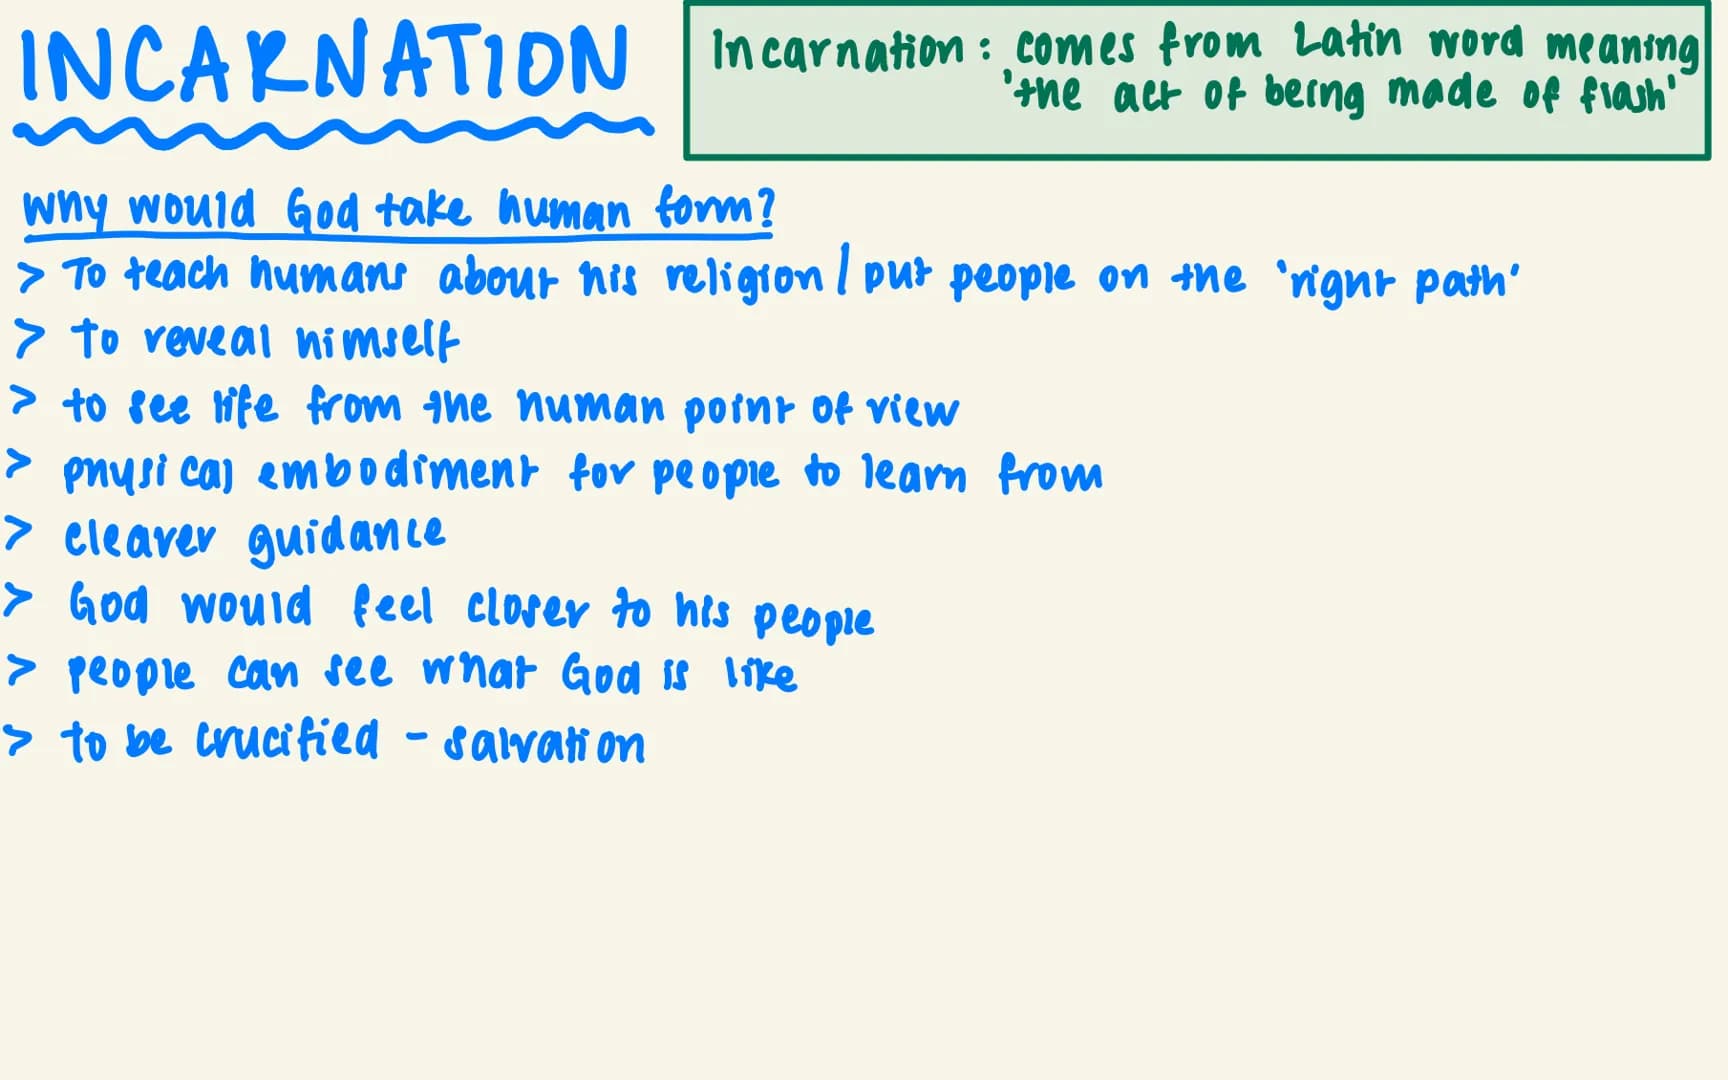 INCARNATION
Incarnation: comes from Latin word meaning
'the act of being made of flash'
Why would God take human form?
> To teach humans about his religion / put people on the 'right path'
> To reveal himself
> to see life from the human point of view
> physical embodiment for people to learn from
> clearer guidance
> God would feel closer to his people
> people can see what God is like
> to be crucified - salvation